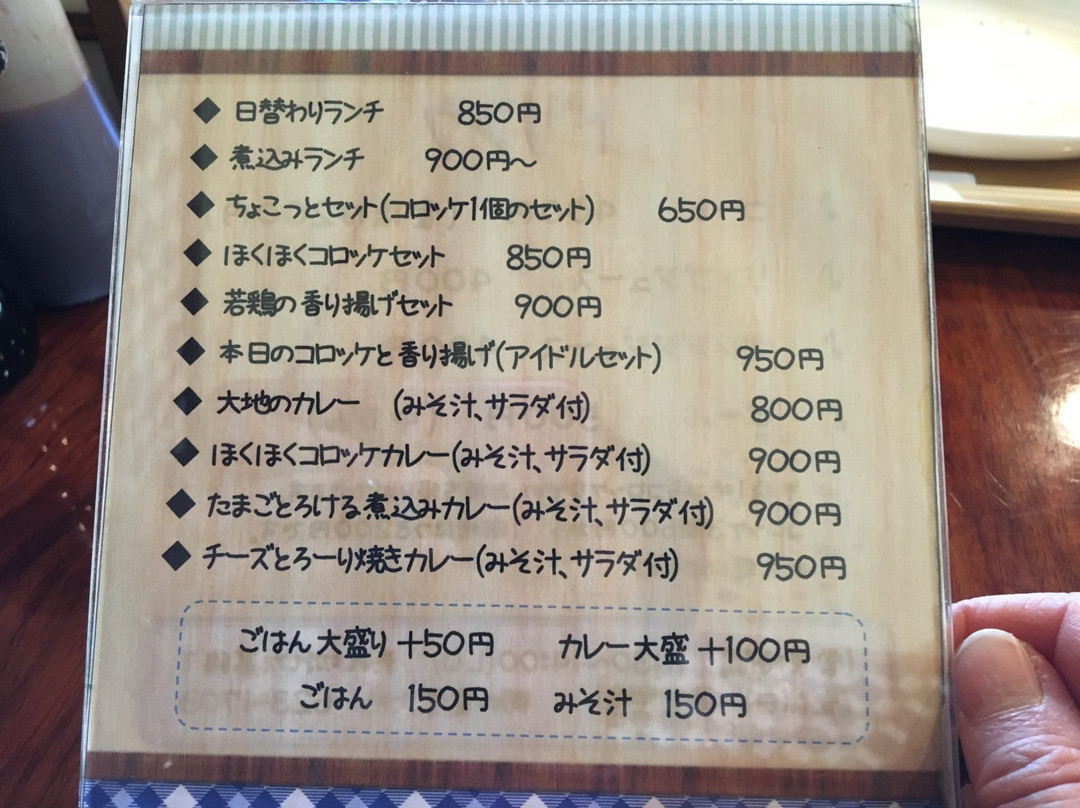 ◆ 日替わりランチ 850円
◆ 煮込みランチ 900円～
◆ ちょこっとセット(コロッケ1個のセット) 650円
◆ ほくほくコロッケセット 850円
◆ 若鶏の香り揚げセット 900円
◆ 本日のコロッケと香り揚げ(アイドルセット) 950円
◆ 大地のカレー (みそ汁、サラダ付) 800円
◆ ほくほくコロッケカレー(みそ汁、サラダ付) 900円
◆ たまごとろける煮込みカレー(みそ汁、サラダ付) 900円
◆ チーズとろーり焼きカレー(みそ汁、サラダ付) 950円
ごはん大盛り +50円 カレー大盛 +100円
ごはん 150円 みそ汁 150円